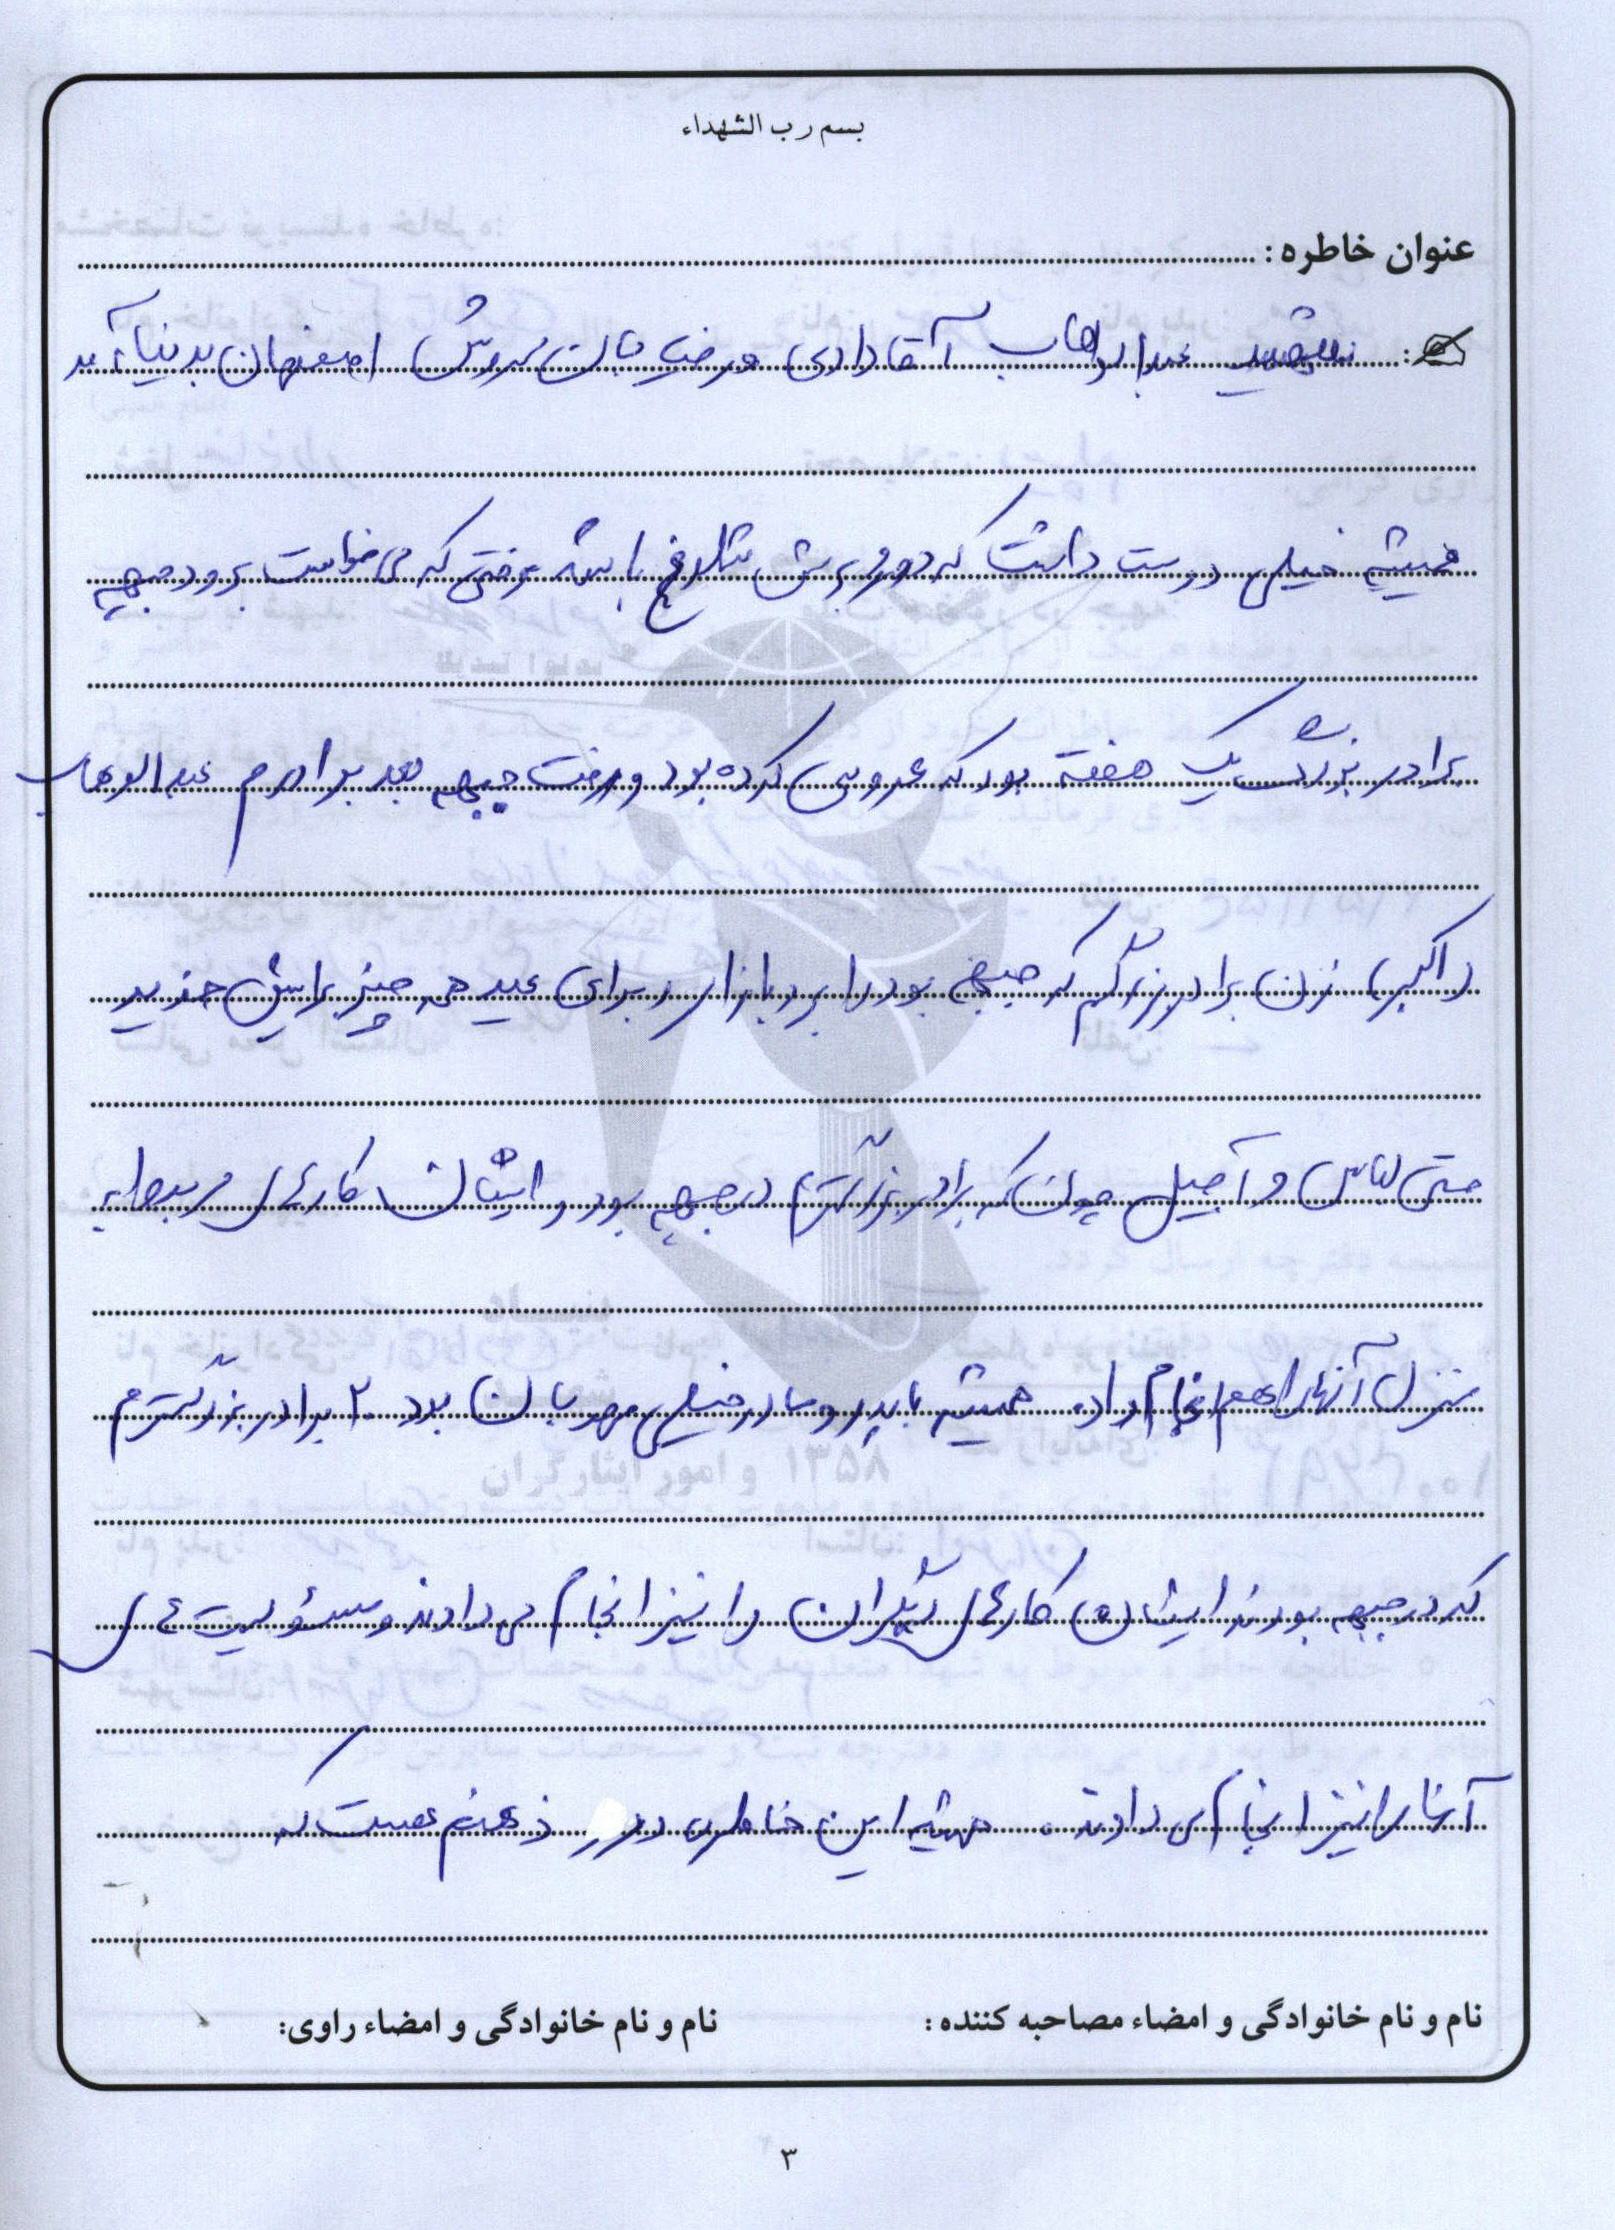 بسم رب الشهداء
عنوان خاطره :
شهید عبدالوهاب آقادادی در خیابان سروش اصفهان بدنیا آمد
همیشه خیلی دوست داشت که دور و برش شلوغ باشد وقتی که می خواست برود جبهه
برادر بزرگش یک هفته بود که عروسی کرده بود و رفت جبهه بعد برادرم عبدالوهاب
(اکبر) زن برادر بزرگم که جبهه بود را برد بازار و برای عید همه چیز برایش خرید
حتی لباس و آجیل چون که برادر بزرگترم در جبهه بود و ایشان کارهای مربوط به
منزل آنها را هم انجام داد. همیشه با پدر و مادر خیلی مهربان بود ۲ برادر بزرگترم
که در جبهه بودند ایشان کارهای دیگران را نیز انجام می دادند و مسئولیت های
آنها را نیز انجام می دادند. همیشه این خاطره در ذهنم هست که
نام و نام خانوادگی و امضاء مصاحبه کننده :
نام و نام خانوادگی و امضاء راوی:
۳